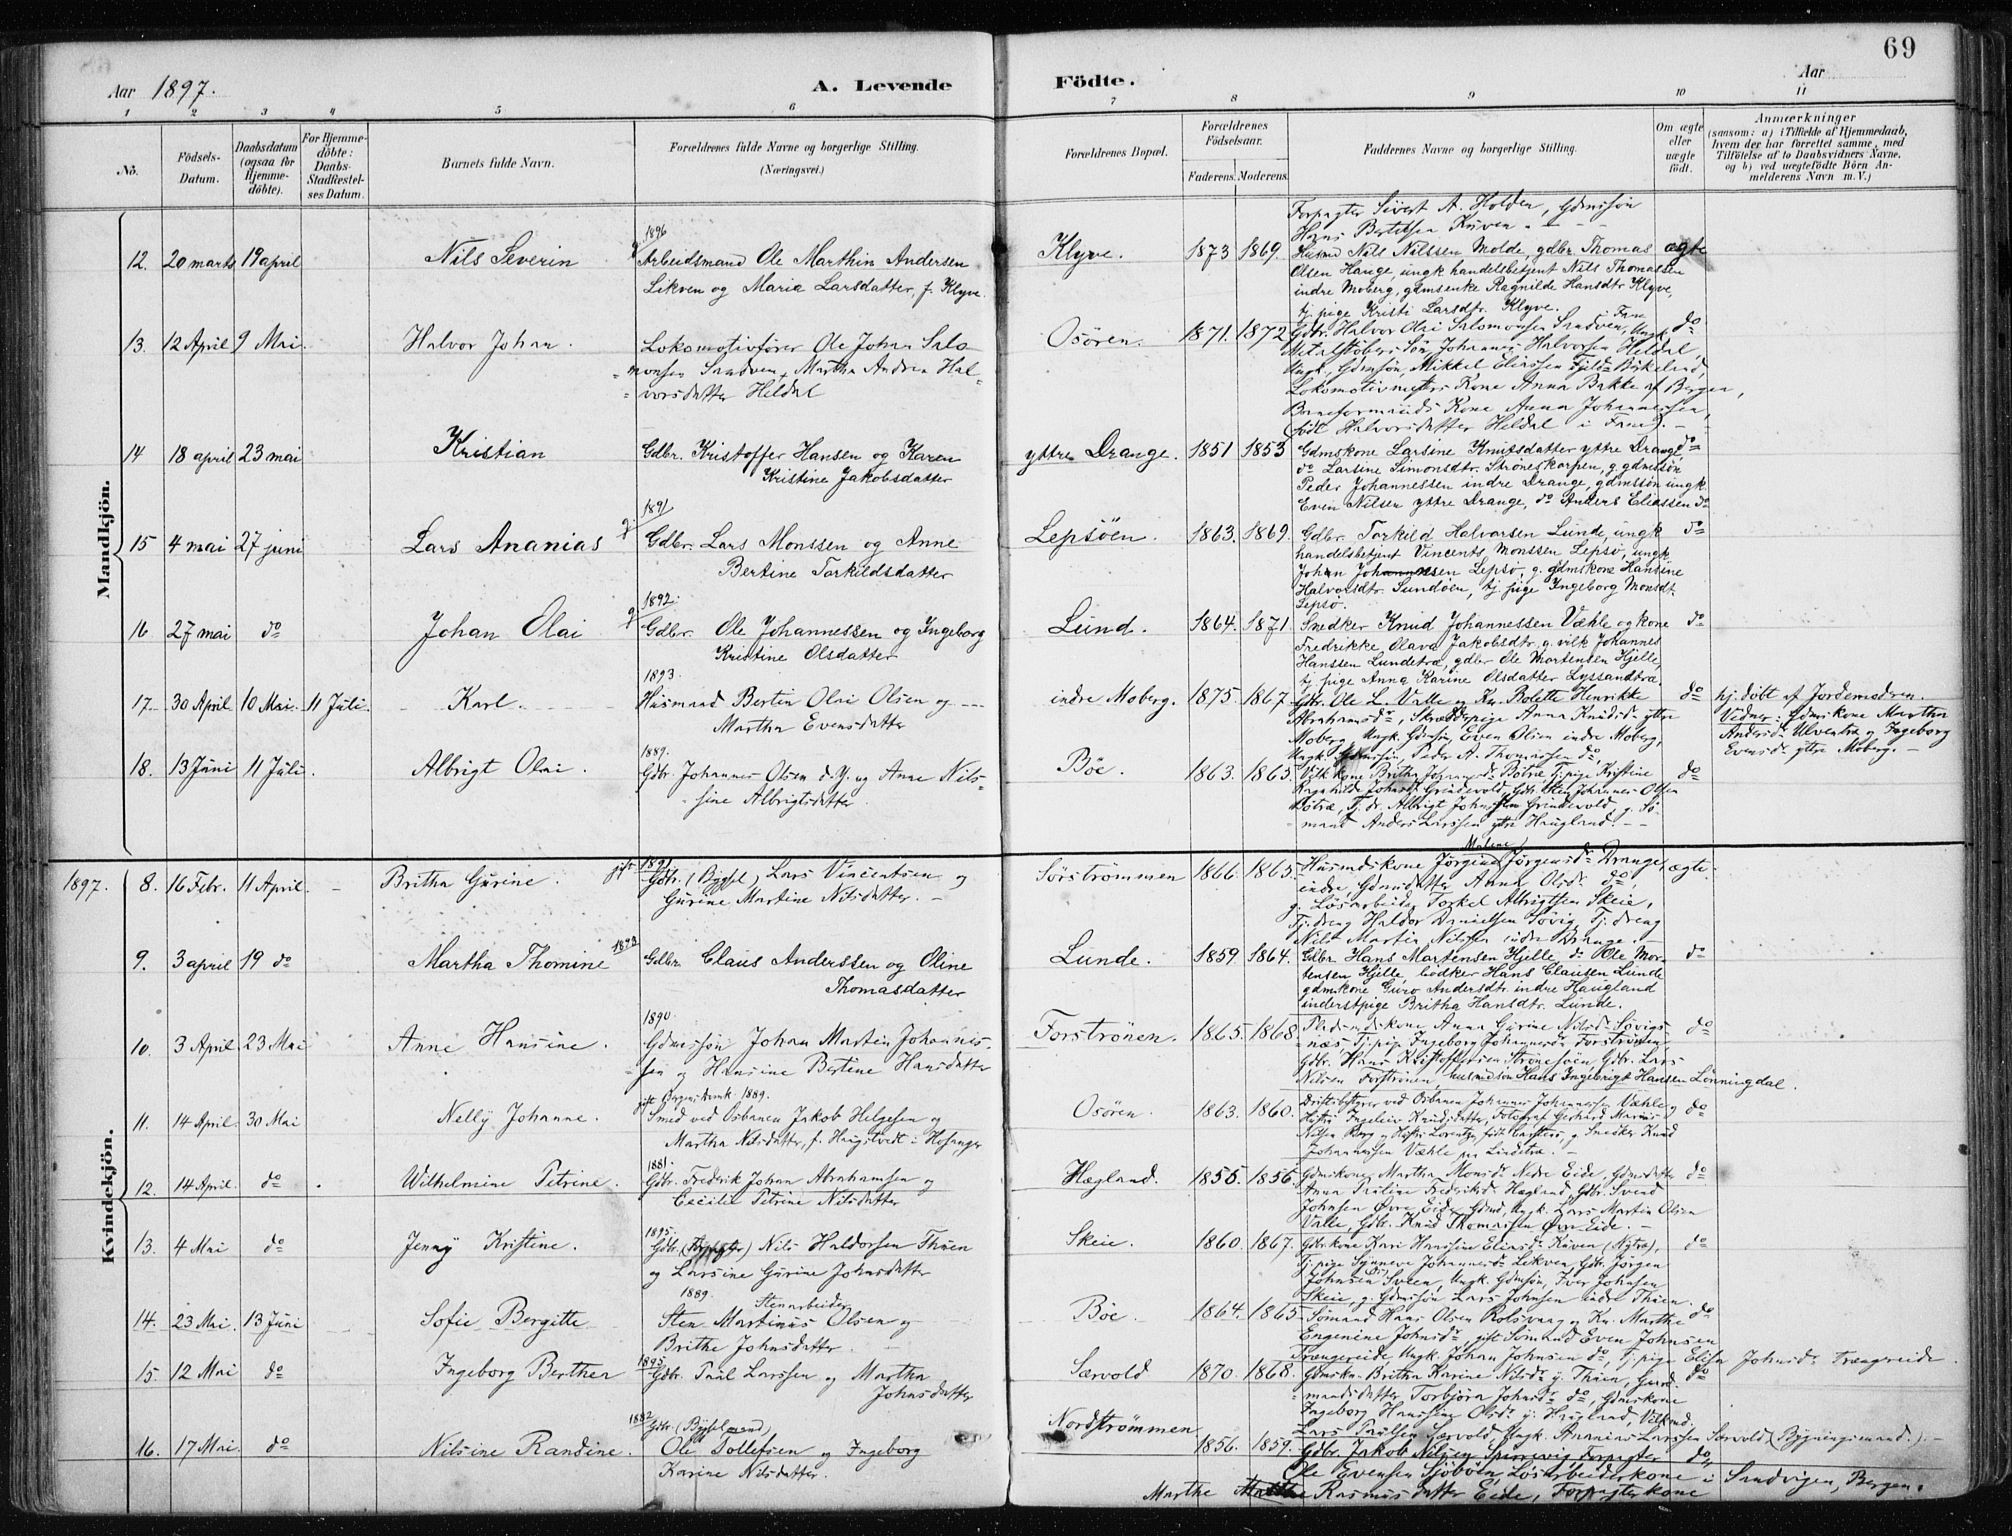 69
Aar 1897.
A. Levende Födte.
Aar
1 2 3 4 5 6 7 8 9 10 11
No.
Födsels-Datum.
Daabsdatum (ogsaa for Hjemme-döbte).
For Hjemme-döbte: Daabs-Stadfæstelses Datum.
Barnets fulde Navn.
Forældrenes fulde Navne og borgerlige Stilling. (Næringsvei.)
Forældrenes Bopæl.
Forældrenes Födselsaar. Faderens. Moderens.
Faddernes Navne og borgerlige Stilling.
Om ægte eller uægte födt.
Anmærkninger
(saasom: a) i Tilfælde af Hjemmedaab, hvem der har forrettet samme, med Tilföielse af to Daabsvidners Navne, og b) ved uægtefödte Börn Anmelderens Navn m. V.)
Mandkjön.
Forpagter Sivert A. Holden, Gdmssøn
Hans Bertilsen Kuven.
12. 20 marts 19 april Nils Severin 1896
Arbeidsmand Ole Marthin Andersen
Likven og Marie Larsdatter f. Klyve.
Klyve. 1873 1869. Husmd Nils Nilssen Molde, gdbr Thomas ægte
Olsen Hauge, ungk handelsbetjent Nils Thomassen
indre Moberg, gdmsenke Ragnilde Hansdtr Klyve,
tj. pige Kristi Larsdtr. Klyve.
13. 12 April 9 Mai. Halvor Johan. Lokomotivfører Ole Johan Salo
monsen Sandven, Martha Andrea Hal-
vorsdatter Heldal
Osören. 1871. 1872 Gdbr. Halvor Olai Salomonsen Sandven, Ungk. do
Metalstøbers Søn Johannes Halvorsen Heldal,
Ungk. Gdmsøn, Mikkel Eliassen Birkeland,
Lokomotivmesters Kone Anna Bakke af Bergen,
Kone Anna Johannessen,
født Halvorsdatter Heldal i Fane).
14 18 april 23 mai Kristian Gdbr. Kristoffer Hansen og Karen
Kristine Jakobsdatter
yttre Drange. 1851 1853 Gdmskone Larsine Knutsdatter yttre Drange, do
do Larsine Simonsdtr. Strøneskarpen, g. gdmssøn
Peder Johannessen indre Drange, gdmssøn ungk.
Even Nilsen yttre Drange, do Anders Eliassen do
15 4 mai 27 juni Lars Ananias g. 1891
Gdbr. Lars Monssen og Anne
Bertine Torkildsdatter
Lepsöen. 1863. 1869. Gdbr. Torkild Halvorsen Lunde, ungk do
handelsbetjent Vincents Monssen Lepsø, ungk
Johan Johannesen Lepsø, g. gdmskone Hansine
Halvorsdtr. Sundøen, tj. pige Ingeborg Monsdt.
Lepsø.
16 27 mai do Johan Olai g. 1892.
Gdbr. Ole Johannessen og Ingeborg
Kristine Olsdatter
Lund. 1864. 1871. Snedker Knud Johannessen Væhle og kone do
Fredrikke Olava Jakobsdtr, g. vilk Johannes
Hanssen Lundetræ, gdbr Ole Mortensen Hjelle,
tj. pige Anna Karine Olsdatter Lyssandtræ.
17. 30 April 10 Mai. 11 Juli. Karl. 1893.
Husmand Bertin Olai Olsen og
Martha Evensdatter
indre Moberg. 1875. 1867 Gdbr. Ole L. Valle og Kn. Bolette Henrikke do
Abrahamsdr, Anna Knudsd. yttre
Moberg, Ungk. Gdmsøn, Even Olsen indre Moberg,
Ungk. Gdmssøn, Peder A. Thomassen do.
hj. døbt af Jordemodren.
Vidner: Gdmskone Martha
Andersdr Ulventræ og Ingeborg
Evensdr. yttre Moberg.
18. 13 Juni 11 Juli. Albrigt Olai. 1889.
Gdbr. Johannes Olsen d. Y. og Anne Nils-
sine Albrigtsdatter.
Böe. 1863. 1865. Vilk kone Britha Bötræ, tj. pige Kristine do
Ragnhilde Johnsdr Grindevold, Gdbr. Johannes Olsen
Bötræ, Tj. dr. Albrigt Johnsen Grindevold, g. Sö-
mand Anders Larssen yttre Haugland.
Kvindekjön.
1897. 8. 16 Febr. 11 April. Britha Gurine. gift 1891
Gdbr. (Bygsel) Lars Vincentsen og
Gurine Martine Nilsdatter.
Sörströmmen 1866. 1865. Husmdskone Malene Jørgensdr Drange, ægte.
indre, Gdmdatter Anna Olsdr do,
g. Løsarbeider Torkel Albrigtsen Skeie,
Tj. dreng Haldor Danielsen Søvig, Tj. dreng
Nils Martin Nilsen indre Drange.
9. 3 april 19 do Martha Thomine 1893
Gdbr. Claus Anderssen og Oline
Thomasdatter
Lunde. 1859. 1864. Gdbr. Hans Martensen Hjelle, do Ole Mor- do
tensen Hjelle, bødker Hans Clausen Lunde
gdmskone Guro Andersdtr. indre Haugland
inderstpige Britha Hansdtr. Lunde.
10. 3 April. 23 Mai Anne Hansine. 1890.
Gdmssøn Johan Martin Johannes-
sen og Hansine Bertine Hansdatter
Forstrønen. 1865. 1868. Anna Gurine Nilsdr Søvigs- do
næs, Tj. pige Ingeborg Johannesdr Forstrønen,
Gdbr. Hans Kristoffersen Strønesøen, Gdbr. Lars
Nilsen Forstrønen, husmdsøn Hans Ingebrigt Hansen Lønningdal.
11. 14 April. 30 Mai Nelly Johanne. 1889.
Smed ved Osbanen Jakob Helgesen og
Martha Nilsdatter, f. Haugstvedt i Hosanger
Osören. 1863. 1860. Driftsbestyrer ved Osbanen Johannes Johannessen Væhle og do
Hustru Ingeleiv Knudsdatter, Fotograf Gerhard Marius
Nilsen Berg og Hustru Lorentze, g. Snedker Knud
Johannessen Væhle paa Lindetræ.
12. 14 April. do Wilhelmine Petrine. 1881.
Gdbr. Fredrik Johan Abrahamsen og
Cecilie Petrine Nilsdatter
Hægland. 1856. 1856. Gdmskone Martha Monsdr Nedre Eide, Gdmdatter do
Anna Pauline Fredriksdr Hægland, Gdbr. Svend
Johnsen Øvre Eide, Ungk. Lars Martin Olsen
Valle, Gdbr. Knud Thomassen Øvre Eide.
13. 4 Mai do Jenny Kristine. 1895.
Gdbr. (Forpagter) Nils Haldorsen Thuen
og Larsine Gurine Johnsdatter
Skeie. 1860. 1867. Gdbrkone Kari Hanssine Eliasdr Kuven (Nytræ), do
Tj. pige Synneve Johannesdr Lekven, Gdbr. Jørgen
Johnsen Sveen, Ungk. Gdmsøn, Iver Johnsen
Skeie, g. Gdmssøn Lars Johnsen indre Thuen.
14. 23 Mai. 13 Juni Sofie Bergitte 1889. Stenarbeider
Sten Martinus Olsen og
Brithe Johnsdatter.
Böe. 1864. 1865. Sømand Hans Olsen Rolsvaag og Kn. Marthe do
Engenine Johnsdr, gift Sømand Even Johnsen
Trængereide Ungk. Johan Johnsen do, Tj. pige Elisa Johnsdr Trængreide.
15. 12 Mai do Ingeborg Berthea 1895.
Gdbr. Paul Larssen og Martha
Johnsdatter
Særvold 1870. 1868. Gdmskn. Britha Karine Nilsdr y. Thuen, Gard- do
mandsdatter Torbjørg Johnsdr do, Gdmskone
Ingeborg Hanssine Olsdr y. Haugland,
Lars Paulsen Særvold, Ungk. Ananias Larssen Særvold (Bygningsmand.).
16. 17 Mai. do Nilsine Randine. 1882 Gdbr. (Bygselmand)
Ole Tollefsen og Ingeborg
Karine Nilsdatter.
Nordströmmen 1856. 1859. Gdbr. Jakob Nilsen Spurrevig, Forpagter do
Ole Evensen Sjöbøen, Løsarbeiderkone i Sandvigen, Bergen.
Marthe Rasmusdatter Eide, Forpagterkone